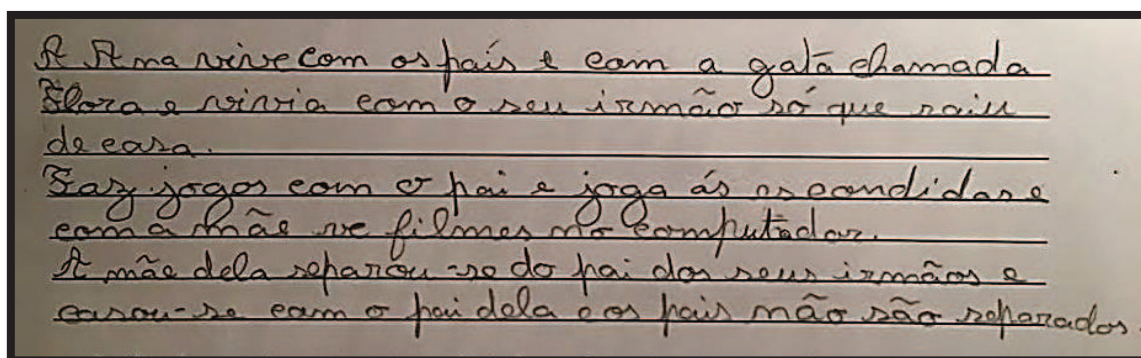 A Ana vive com os país e com a gata chamada
Flora e vivia com o seu irmão só que saiu
de casa.
Faz jogos com o pai e joga ás escondidas e
com a mãe ve filmes no computador.
A mãe dela separou-se do pai dos seus irmãos e
casou-se com o pai dela e os pais não são separados.